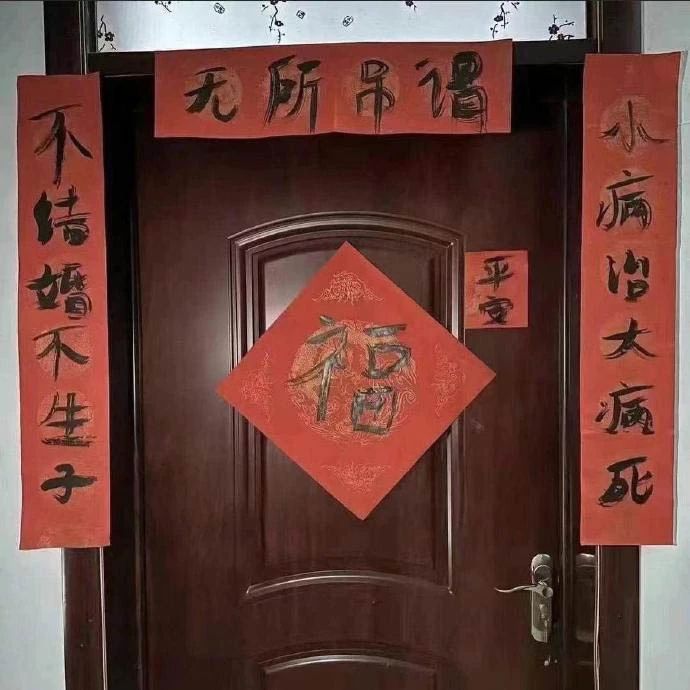 无所吊谓
小病治大病死
不结婚不生子
福
平安